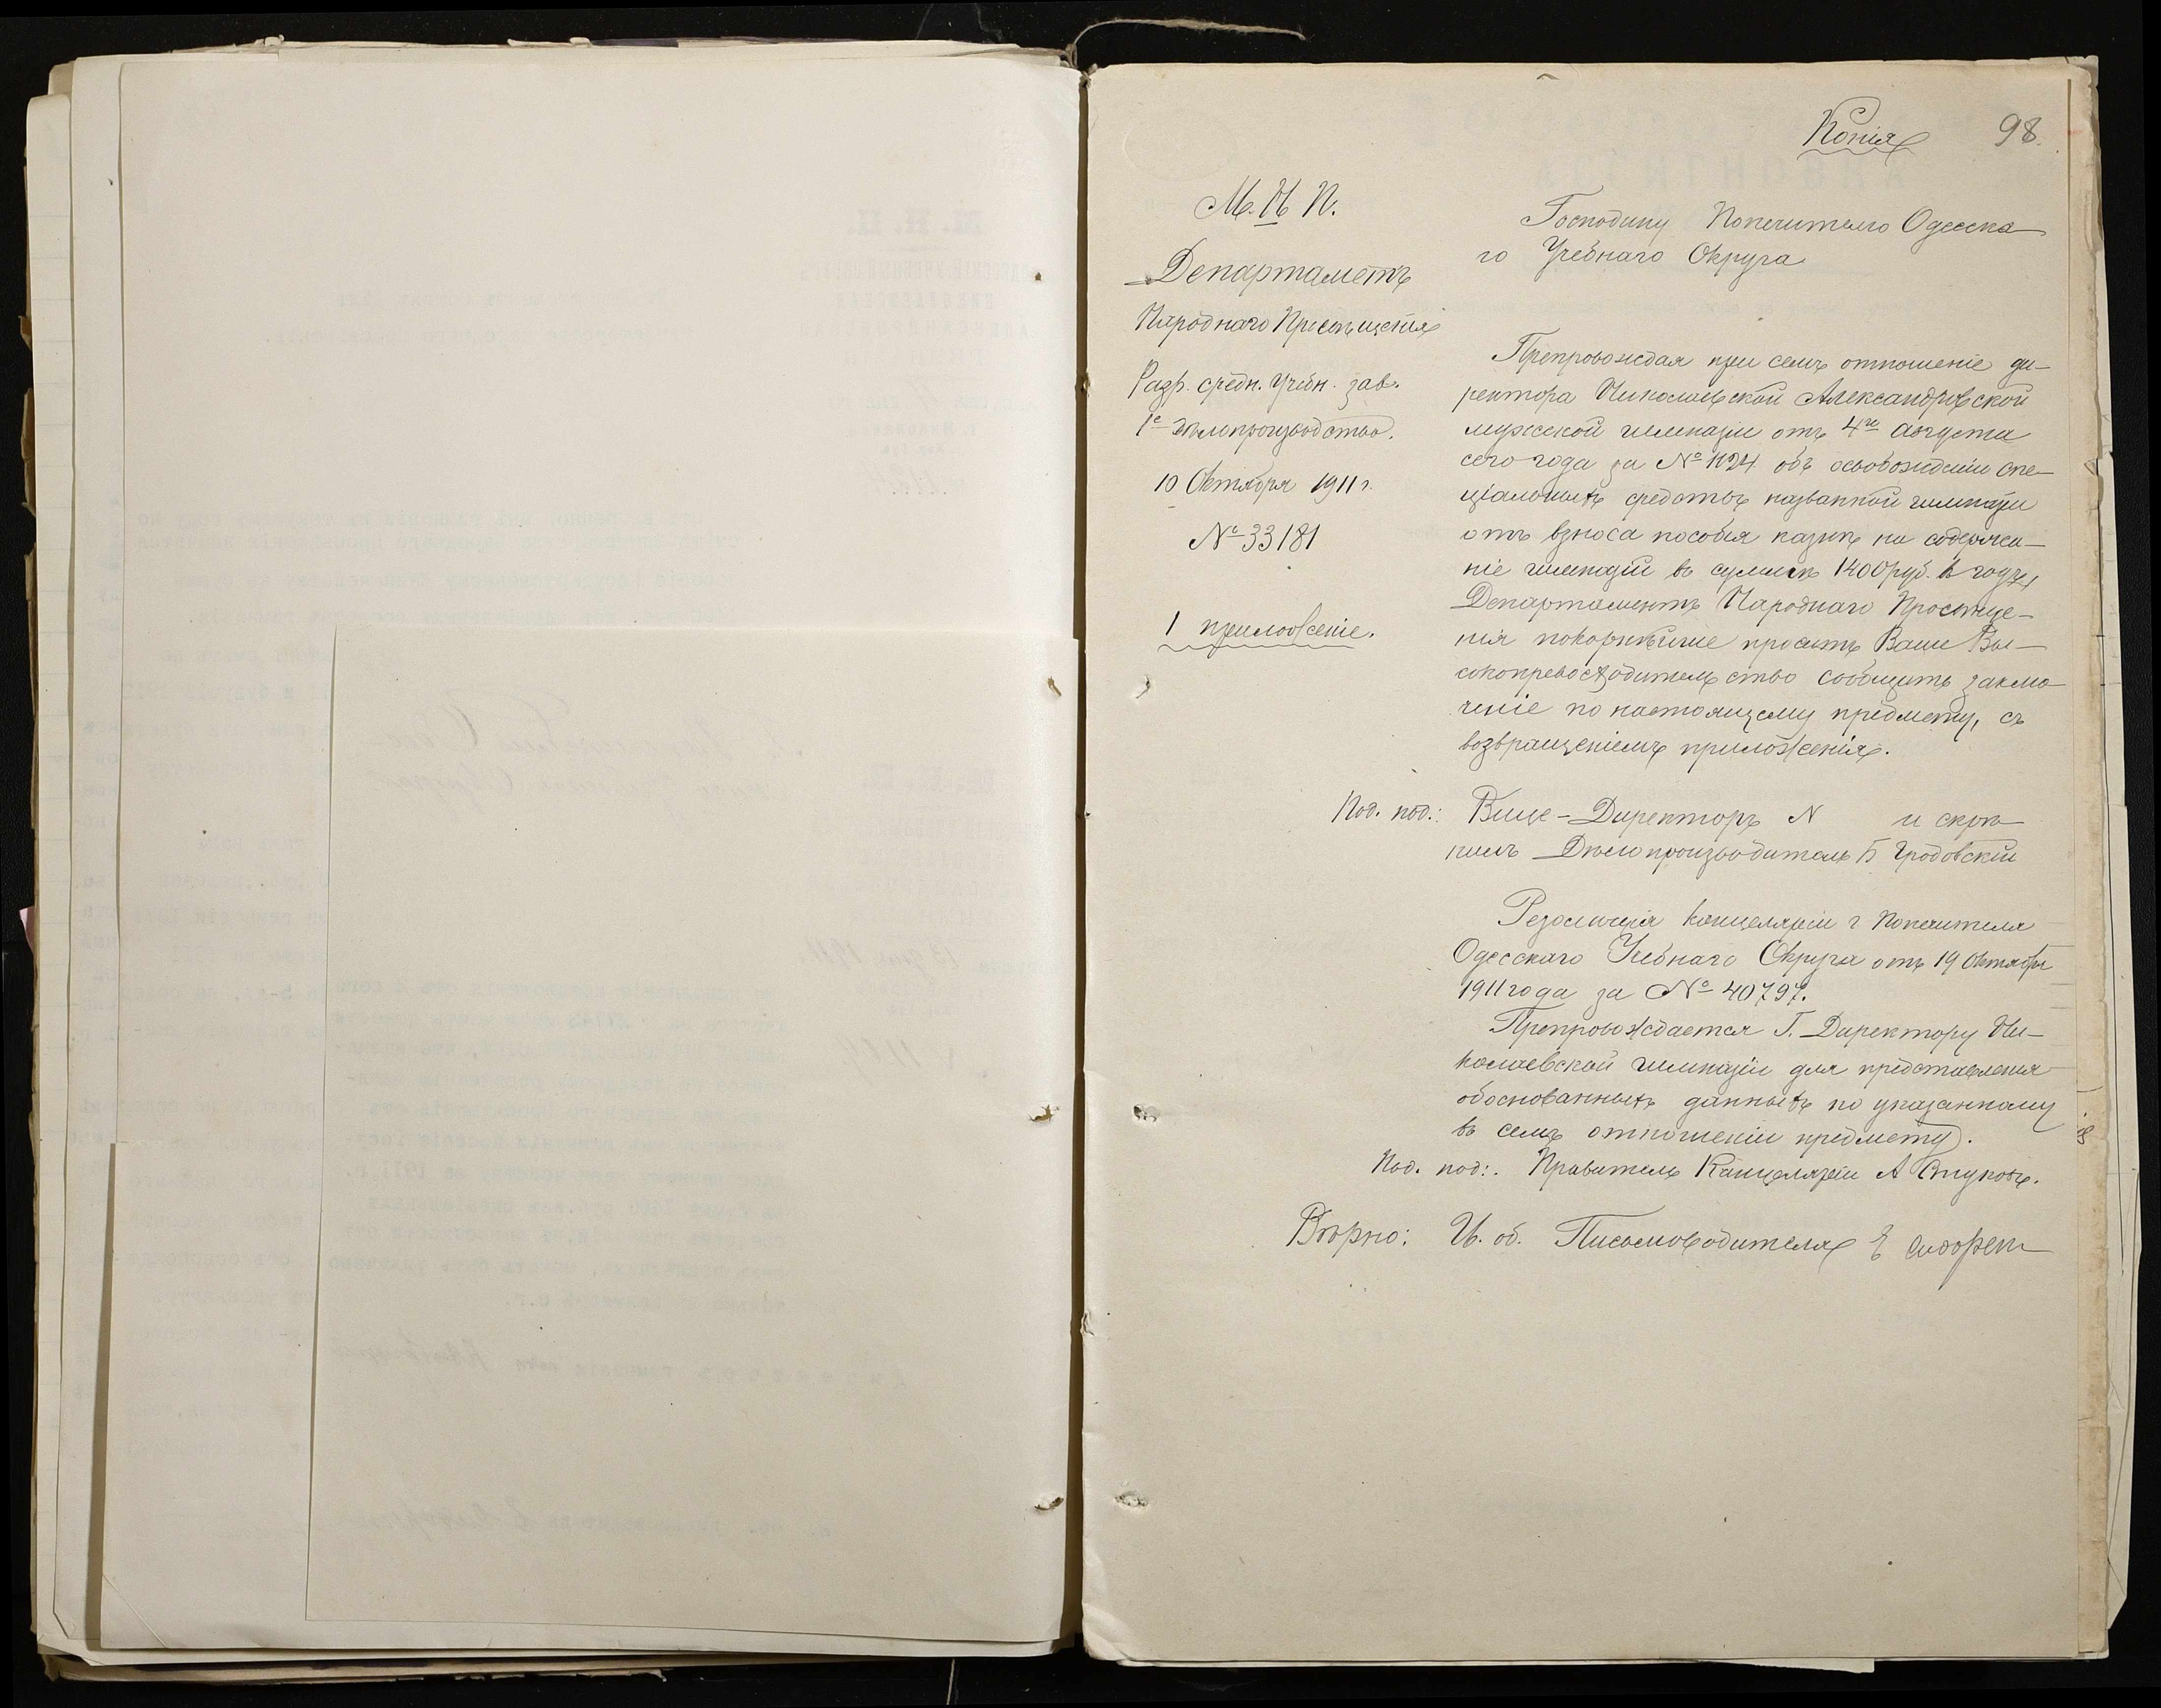 Копія
98.
М. Н. П.
Департаметъ
Народнаго Просвѣщенія
Разр. средн. учебн. зав.
1е дѣлопроизводство.
10 Октября 1911 г.
№ 33181
1 приложеніе.
Господину Попечителю Одесска
го Учебнаго Округа
Препровождая при семъ отношеніе ди-
ректора Николаевской Александровской
мужской гимназіи отъ 4го августа
сего года за № 1124 объ освобожденіи спе-
ціальныхъ средствъ названной гимназіи
отъ взноса пособія казнѣ на содержа-
ніе гимназіи въ суммѣ 1400 руб. въ годъ,
Департаментъ Народнаго Просвѣще-
нія покорнѣйше проситъ Ваше Вы-
сокопревосходительство сообщить заклю-
ченіе по настоящему предмету, съ
возвращеніемъ приложенія.
Под. под.: Вице-Директоръ N и скрѣ-
пилъ Дѣлопроизводитель Б Гродовскій
Резолюція Канцеляріи г Попечителя
Одесскаго Учебнаго Округа отъ 19 Октября
1911 года за № 40797.
Препровождается Г. Директору Ни-
колаевской гимназіи для представленія
обоснованныхъ данныхъ по указанному
въ семъ отношеніи предмету.
Под. под.: Правитель Канцеляріи А Стуковъ.
Вѣрно: И. об. Письмоводителя Е